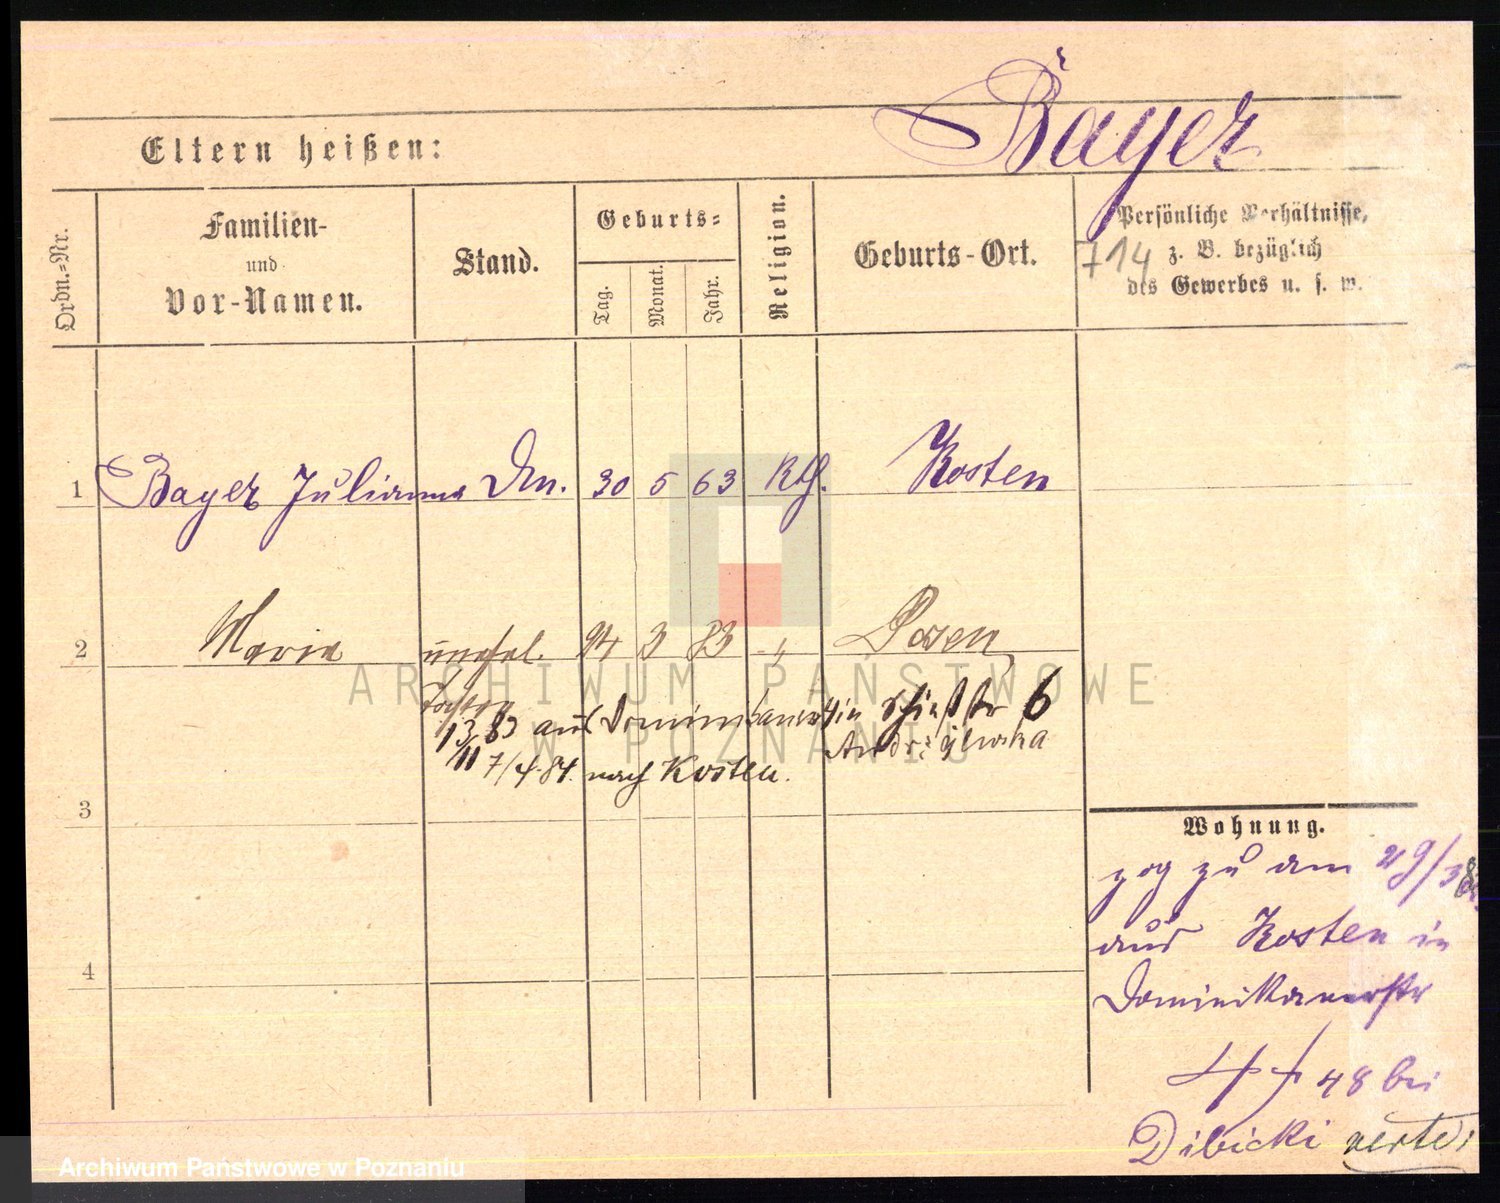 Bayer
Eltern heißen:
Ordn.=Nr.
Familien-
und
Vor-Namen.
Stand.
Geburts=
Tag.
Monat.
Jahr.
Religion.
Geburts-Ort.
Persönliche Verhältnisse,
z. B. bezüglich
des Gewerbes u. s. w.
714
1 Bayer Julianna Dn. 30 5 63 Kth. Kosten
2 Maria unehel. 24 3 83 " Posen
Tochter
13/11 83 aus Dominikanerstr in Schießstr 6
7/4.84. nach Kosten.
3
4
Wohnung.
zog zu am 29/3
aus Kosten in
Dominikanerstr
48 bei
Dibicki verte!
ARCHIWUM PAŃSTWOWE
W POZNANIU
Archiwum Państwowe w Poznaniu